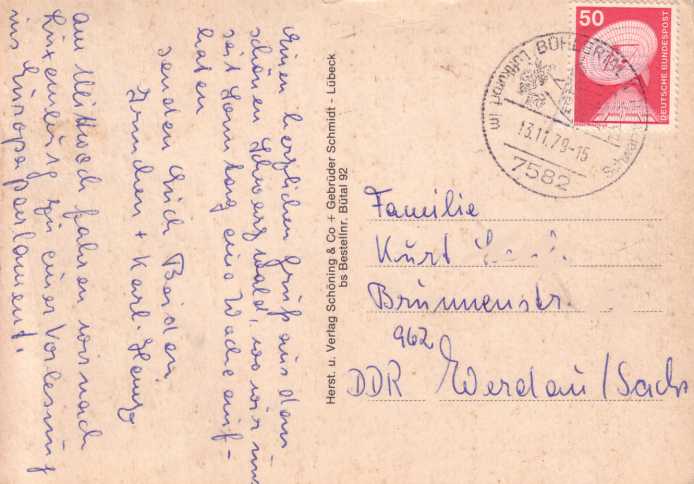 Einen herzlichen Gruß aus dem
schönen Schwarzwald, wo wir uns
seit Sonntag eine Woche auf-
halten
senden Euch Beiden
+ Karl-Heinz
am Mittwoch fahren wir nach
Luxemburg zu einer Vorlesung
ins Europaparlament.
Herst. u. Verlag Schöning & Co + Gebrüder Schmidt - Lübeck
bs Bestellnr. Bütal 92
50
DEUTSCHE BUNDESPOST
Luftkurort im
13.11.79-15
7582
Familie
Kurt
Brunnenstr.
962
DDR Werdau/Sachs